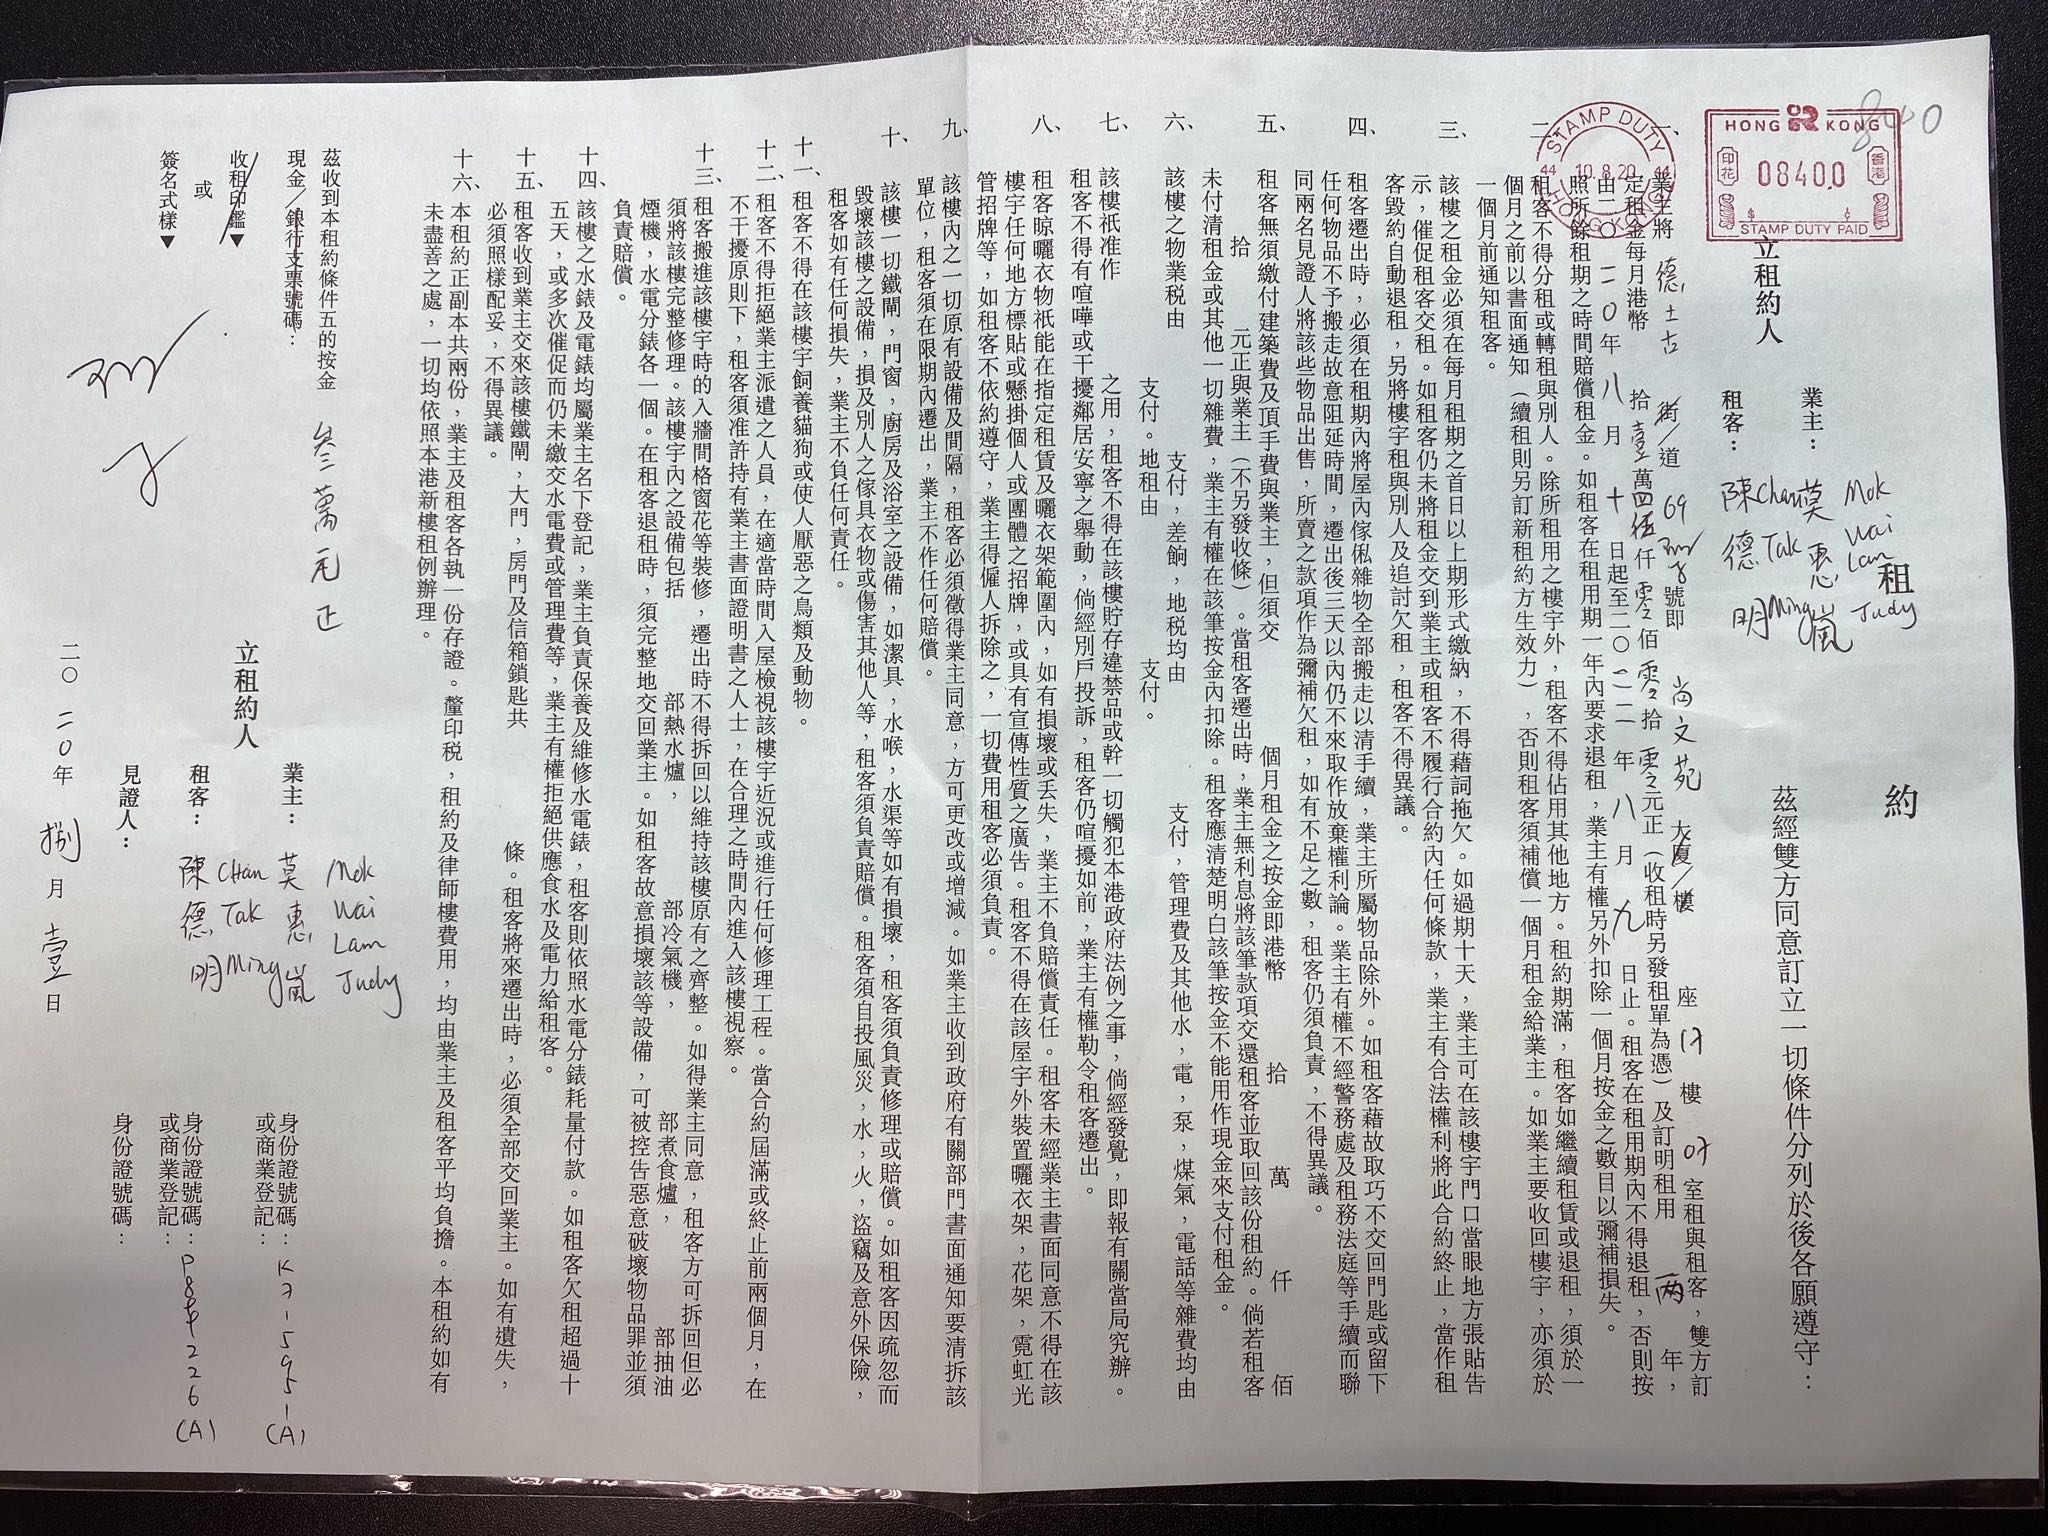 租約
茲經雙方同意訂立一切條件分列於後各願遵守：
立租約人
業主： 莫惠嵐 Mok Wai Lam Judy
租客： 陳德明 Chan Tak Ming
HONG KONG
印花
香港
0840.0
$ ¢
STAMP DUTY PAID
STAMP DUTY
44 10.8.20 44
HONG KONG
840
一、業主將 德士古 街／道 69 號即 尚文苑 大廈／樓 座 17 樓 07 室租與租客，雙方訂
定租金每月港幣 拾壹萬四伍仟零佰零拾零元正（收租時另發租單為憑）及訂明租用 兩 年，
由二〇二〇年八月十日起至二〇二二年八月九日止。租客在租用期內不得退租，否則按
照所餘租期之時間賠償租金。如租客在租用期一年內要求退租，業主有權另外扣除一個月按金之數目以彌補損失。
二、租客不得分租或轉租與別人。除所租用之樓宇外，租客不得佔用其他地方。租約期滿，租客如繼續租賃或退租，須於一
個月之前以書面通知（續租則另訂新租約方生效力），否則租客須補償一個月租金給業主。如業主要收回樓宇，亦須於
一個月前通知租客。
三、該樓之租金必須在每月租期之首日以上期形式繳納，不得藉詞拖欠。如過期十天，業主可在該樓宇門口當眼地方張貼告
示，催促租客交租。如租客仍未將租金交到業主或租客不履行合約內任何條款，業主有合法權利將此合約終止，當作租
客毀約自動退租，另將樓宇租與別人及追討欠租，租客不得異議。
四、租客遷出時，必須在租期內將屋內傢俬雜物全部搬走以清手續，業主所屬物品除外。如租客藉故取巧不交回門匙或留下
任何物品不予搬走故意阻延時間，遷出後三天以內仍不來取作放棄權利論。業主有權不經警務處及租務法庭等手續而聯
同兩名見證人將該些物品出售，所賣之款項作為彌補欠租，如有不足之數，租客仍須負責，不得異議。
五、租客無須繳付建築費及頂手費與業主，但須交 個月租金之按金即港幣 拾 萬 仟 佰
拾 元正與業主（不另發收條）。當租客遷出時，業主無利息將該筆款項交還租客並取回該份租約。倘若租客
未付清租金或其他一切雜費，業主有權在該筆按金內扣除。租客應清楚明白該筆按金不能用作現金來支付租金。
六、該樓之物業稅由 支付，差餉，地税均由 支付，管理費及其他水，電，泵，煤氣，電話等雜費均由
支付。地租由 支付。
七、該樓祇准作 之用，租客不得在該樓貯存違禁品或幹一切觸犯本港政府法例之事，倘經發覺，即報有關當局究辦。
租客不得有喧嘩或干擾鄰居安寧之舉動，倘經別戶投訴，租客仍喧擾如前，業主有權勒令租客遷出。
八、租客晾曬衣物祇能在指定租賃及曬衣架範圍內，如有損壞或丟失，業主不負賠償責任。租客未經業主書面同意不得在該
樓宇任何地方標貼或懸掛個人或團體之招牌，或具有宣傳性質之廣告。租客不得在該屋宇外裝置曬衣架，花架，霓虹光
管招牌等，如租客不依約遵守，業主得僱人拆除之，一切費用租客必須負責。
九、該樓內之一切原有設備及間隔，租客必須徵得業主同意，方可更改或增減。如業主收到政府有關部門書面通知要清拆該
單位，租客須在限期內遷出，業主不作任何賠償。
十、該樓一切鐵閘，門窗，廚房及浴室之設備，如潔具，水喉，水渠等如有損壞，租客須負責修理或賠償。如租客因疏忽而
毀壞該樓之設備，損及別人之傢具衣物或傷害其他人等，租客須負責賠償。租客須自投風災，水，火，盜竊及意外保險，
租客如有任何損失，業主不負任何責任。
十一、租客不得在該樓宇飼養貓狗或使人厭惡之鳥類及動物。
十二、租客不得拒絕業主派遣之人員，在適當時間入屋檢視該樓宇近況或進行任何修理工程。當合約屆滿或終止前兩個月，在
不干擾原則下，租客須准許持有業主書面證明書之人士，在合理之時間內進入該樓視察。
十三、租客搬進該樓宇時的入牆間格窗花等裝修，遷出時不得拆回以維持該樓原有之齊整。如得業主同意，租客方可拆回但必
須將該樓完整修理。該樓宇內之設備包括 部熱水爐， 部冷氣機， 部煮食爐， 部抽油
煙機，水電分錶各一個。在租客退租時，須完整地交回業主。如租客故意損壞該等設備，可被控告惡意破壞物品罪並須
負責賠償。
十四、該樓之水錶及電錶均屬業主名下登記，業主負責保養及維修水電錶，租客則依照水電分錶耗量付款。如租客欠租超過十
五天，或多次催促而仍未繳交水電費或管理費等，業主有權拒絕供應食水及電力給租客。
十五、租客收到業主交來該樓鐵閘，大門，房門及信箱鎖匙共 條。租客將來遷出時，必須全部交回業主。如有遺失，
必須照樣配妥，不得異議。
十六、本租約正副本共兩份，業主及租客各執一份存證。釐印税，租約及律師樓費用，均由業主及租客平均負擔。本租約如有
未盡善之處，一切均依照本港新樓租例辦理。
茲收到本租約條件五的按金 叁萬元正
現金／銀行支票號碼：
收租印鑑▼
或
簽名式樣▼
立租約人
業主： 莫惠嵐 Mok Wai Lam Judy 身份證號碼：
或商業登記： K715951(A)
租客： 陳德明 CHan Tak Ming 身份證號碼：
或商業登記：
見證人： 身份證號碼：
二〇二〇年 捌 月 壹 日